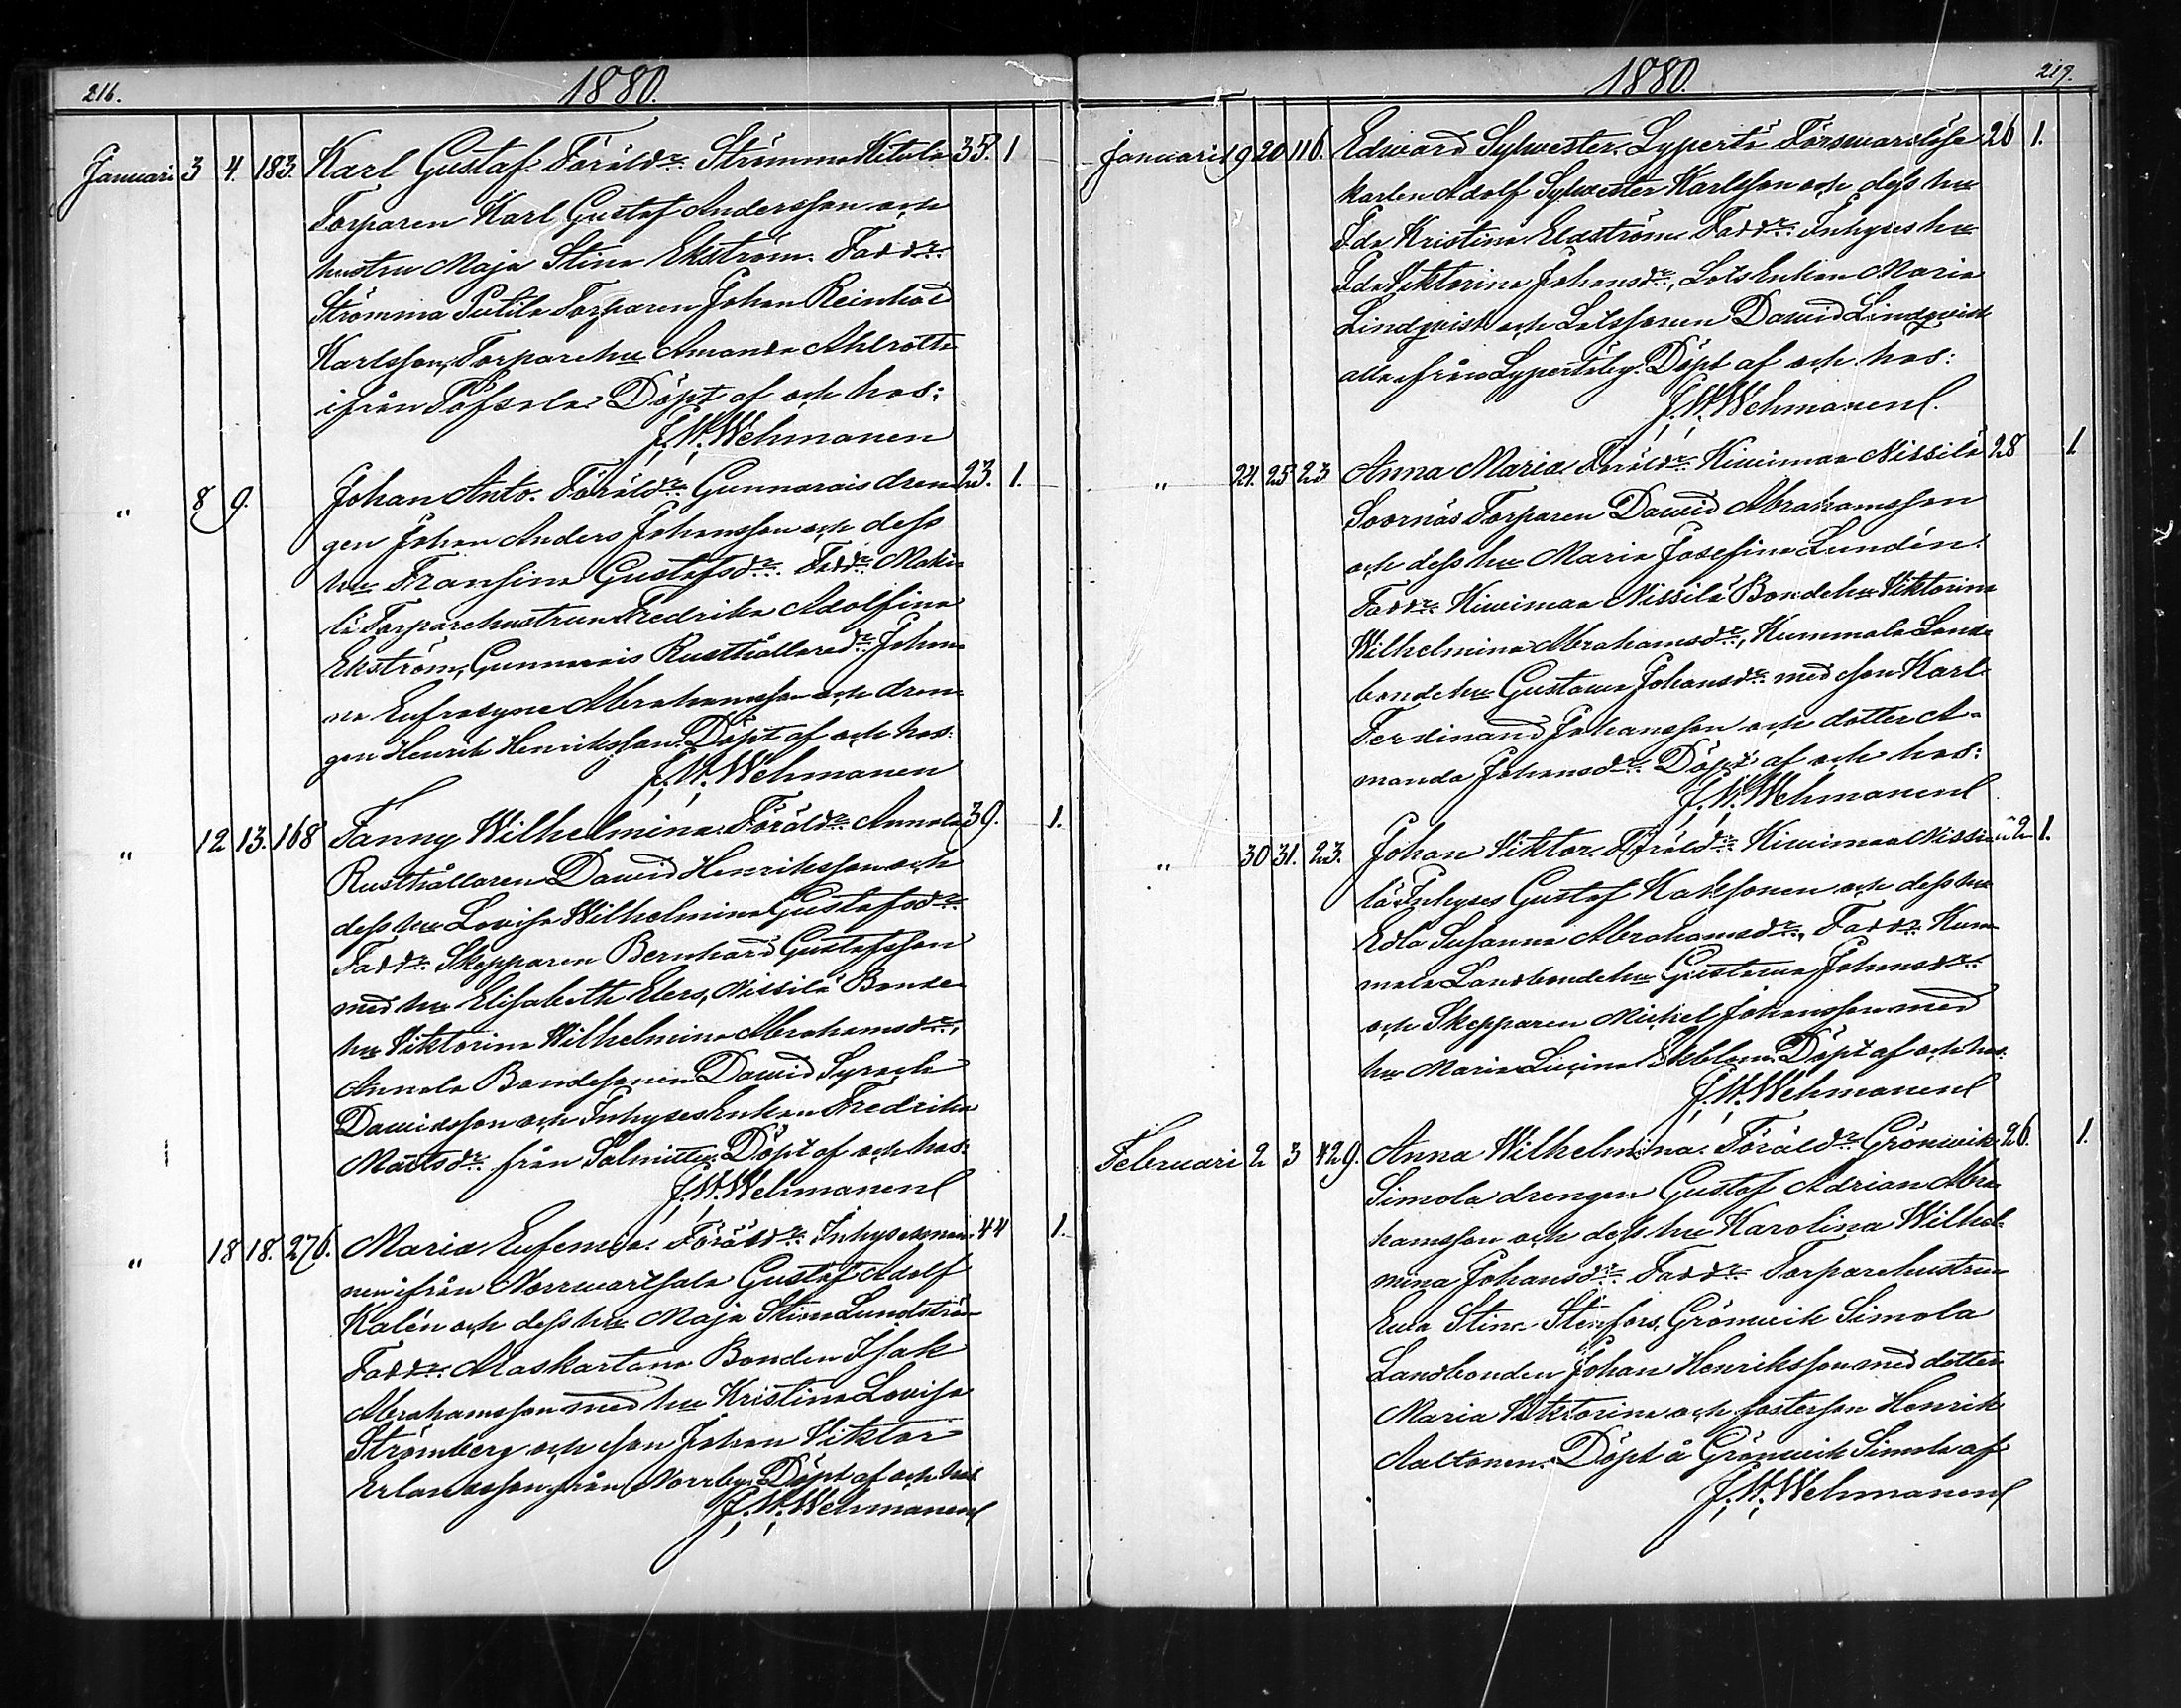 216.
1880.
Januari 3 4. 183. Karl Gustaf. Föräldr: Strömma Ketola 35. 1
Torparen Karl Gustaf Andersson och
hustru Maja Stina Ekström. Faddr:
Strömma Putila Torparen Johan Reinhold
Karlsson, Torparehu Amanda Ahlroth
ifrån Döpt af och hos:
J. W. Wehmanen
" 8 9. Johan Anto. Föräldr: Gunnarais dren 23. 1.
gen Johan Anders Johansson och dess
hu Fransina Gustafsdr: Faddr: Maki
lä Torparehustrun Fredrika Adolfina
Ekström, Gunnarais Rusthållaredr: Johan
na Eufrosyne Abrahamsson och dren
gen Henrik Henriksson. Döpt af och hos:
J. W. Wehmanen
" 12 13. 168 Fanny Wilhelmina. Föräldr: Annala 39. 1.
Rusthållaren Dawid Henriksson och
dess hu Lovisa Wilhelmina Gustafsdr:
Faddr: Skepparen Bernhard Gustafsson
med hu Elisabeth Elers, Nissilä Bonde
hu Viktorina Wilhelmina Abrahamsdr:,
Annala Bondesonen Dawid Syrach
Dawidsson och Inhyses Enkan Fredrika
Mattsdr: från Salmittu. Döpt af och hos:
J. W. Wehmanen
" 18 18. 276. Maria Eufemia. Föräldr: Inhysesman 44 1.
nen ifrån Norrwartsala Gustaf Adolf
Kalén och dess hu Maja Stina Lundström
Faddr: Alaskartano Bonden Isak
Abrahamsson med hu Kristina Lovisa
Strömberg och son Johan Viktor
Erlandsson från Norrby. Döpt af och hos
J. W. Wehmanen
1880.
219.
Januari 19 20 116. Edward Sylwester. Lypertö Försvarslöse 26 1.
karlen Adolf Sylwester Karlsson och dess hu
Ida Kristina Eldström. Faddr: Inhyses hu
Ida Viktorina Johansdr:, Lots Enkan Maria
Lindqvist och Lotssonen Dawid Lindqvist
alla från Lypertöby. Döpt af och hos:
J. W. Wehmanen
" 24. 25 23 Anna Maria. Föräldr: Kiwimaa Nissilä 28 1
Soornäs Torparen Dawid Abrahamsson
och dess hu Maria Josefina Lundén.
Faddr: Kiwimaa Nissilä Bondehu Viktorina
Wilhelmina Abrahamsdr:, Kummala Land
bondehu Gustawa Johansdr: med son Karl
Ferdinand Johansson och dotter A-
manda Johansdr: Döpt af och hos:
J. W. Wehmanen
" 30 31. 23. Johan Viktor. Föräldr: Kiwimaa Nissi 22 1.
lä Inhyses Gustaf Karlsson och dess hu
Edla Susanna Abrahamsdr:, Faddr: Kum
mala Landbondehu Gustawa Johansdr:
och Skepparen Mickel Johansson med
hu Maria Lucina Ekblom. Döpt af och hos.
J. W. Wehmanen
Februari 2 3 429. Anna Wilhelmina. Föräldr: Grönwik 26. 1.
Simola drengen Gustaf Adrian Abra
hamsson och dess hu Karolina Wilhel
mina Johansdr: Faddr: Torparehustrun
Ewa Stina Stenfors, Grönwik Simola
Landbonden Johan Henriksson med dotter
Maria Viktorina och fosterson Henrik
Aaltonen. Döpt å Grönwik Simola af
J. W. Wehmanen